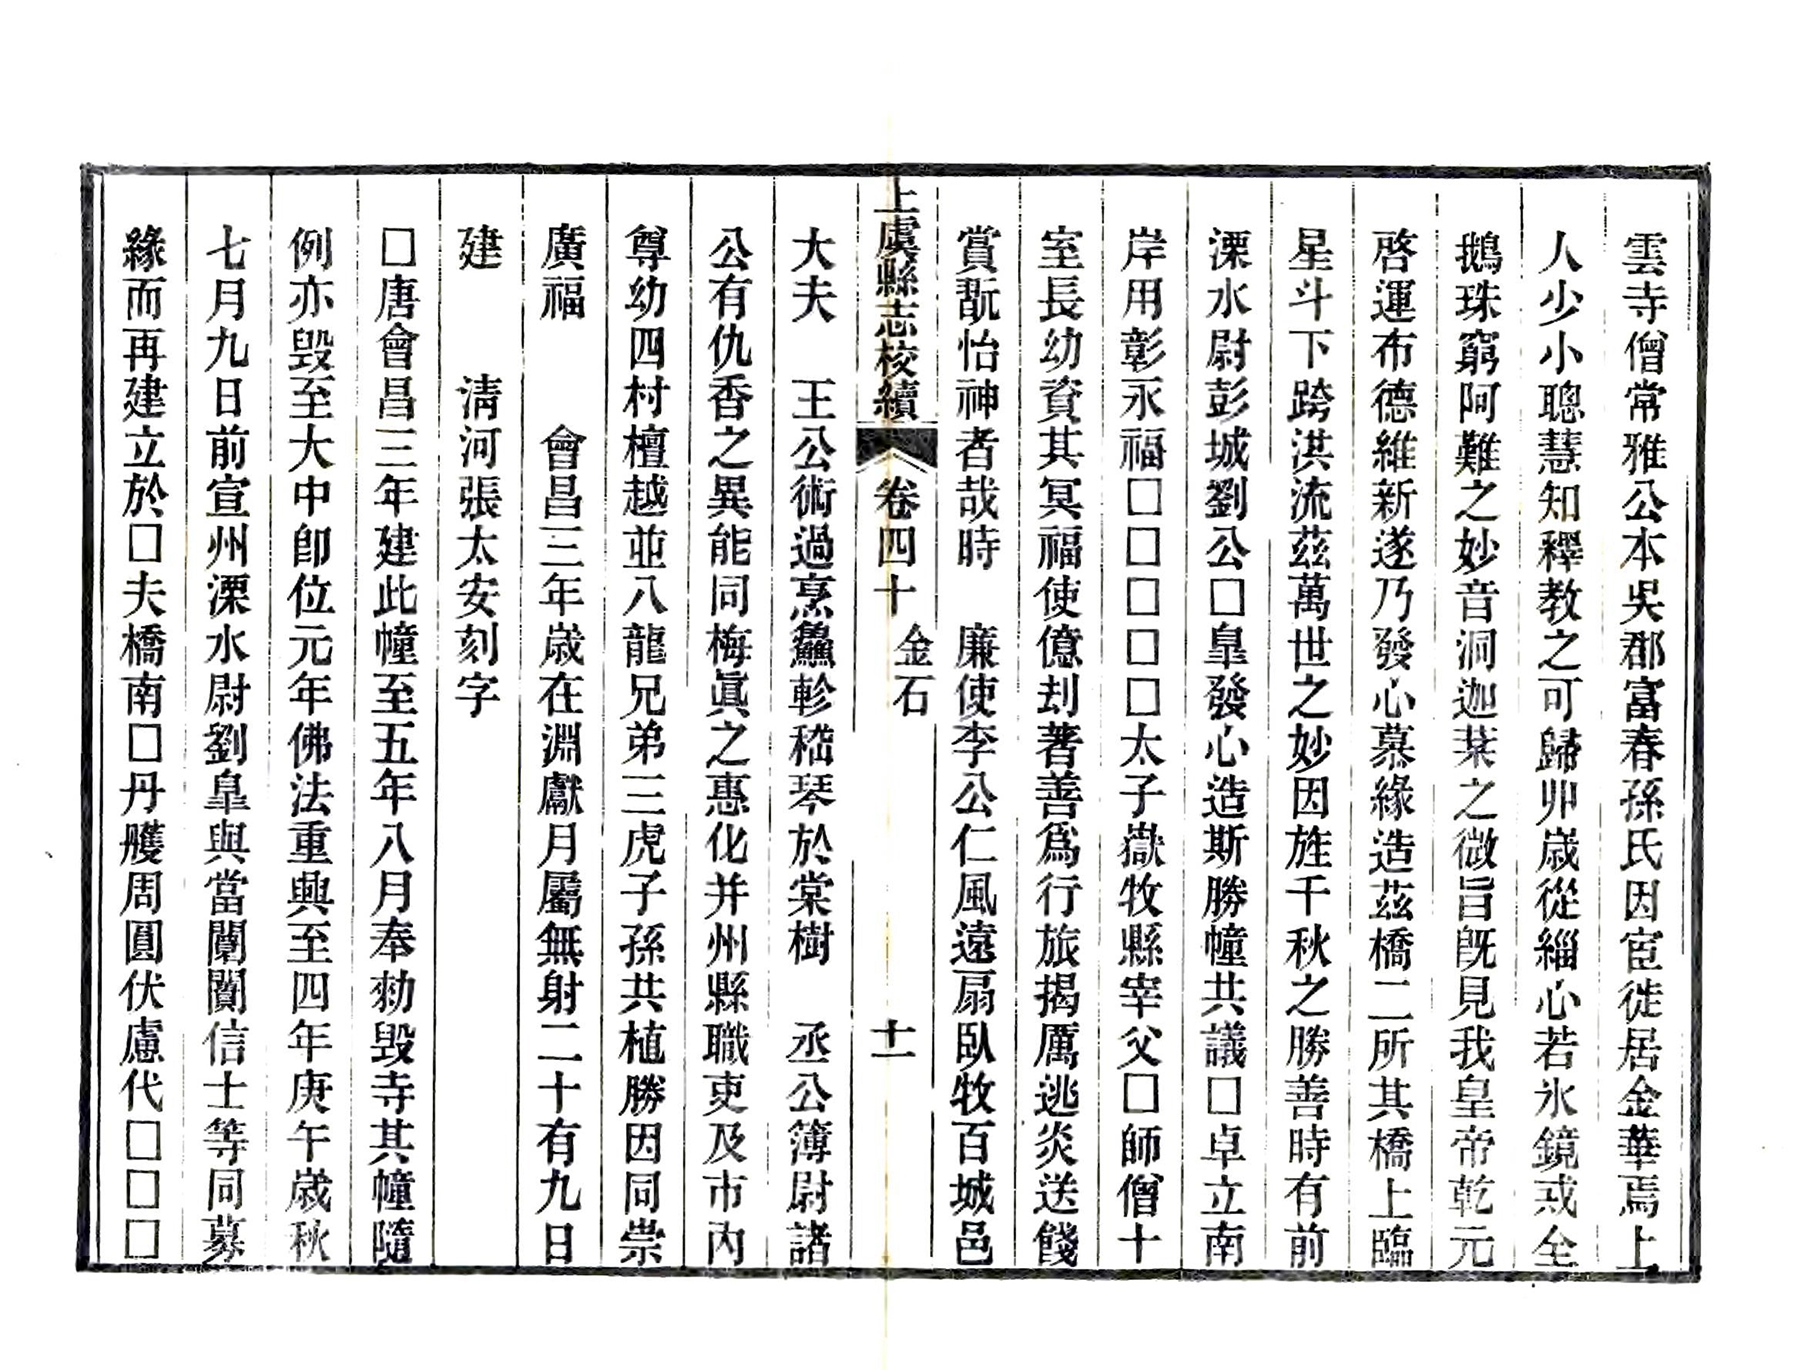 雲寺僧常雅公本吳郡富春孫氏因宦徙居金華焉上
人少小聰慧知釋教之可歸丱歲從緇心若氷鏡戒全
鵝珠窮阿難之妙音洞迦葉之微旨旣見我皇帝乾元
啓運布德維新遂乃發心慕緣造茲橋二所其橋上臨
星斗下跨洪流茲萬世之妙因旌千秋之勝善時有前
溧水尉彭城劉公□皐發心造斯勝幢共議□卓立南
岸用彰永福□□□□□太子嶽牧縣宰父□師僧十
室長幼資其冥福使億刦著善爲行旅揭厲逃炎送餞
賞翫怡神者哉時　廉使李公仁風遠扇臥牧百城邑
上虞縣志校續　卷四十　金石　十一
大夫　王公術過烹鱻軫嵇琴於棠樹　丞公簿尉諸
公有仇香之異能同梅眞之惠化并州縣職吏及市內
尊幼四村檀越並八龍兄弟三虎子孫共植勝因同崇
廣福　　會昌三年歲在淵獻月屬無射二十有九日
建　　淸河張太安刻字
□唐會昌三年建此幢至五年八月奉勑毀寺其幢隨
例亦毀至大中卽位元年佛法重興至四年庚午歲秋
七月九日前宣州溧水尉劉皐與當闤闠信士等同募
緣而再建立於□夫橋南□丹雘周圓伏慮代□□□